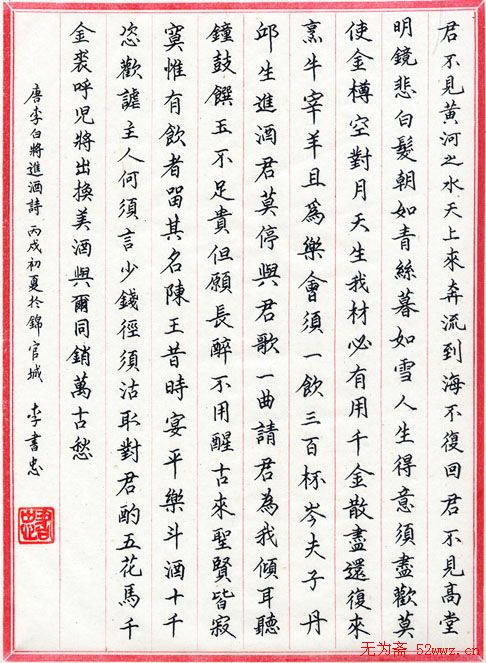 君不見黃河之水天上來奔流到海不復回君不見高堂
明鏡悲白髮朝如青絲暮如雪人生得意須盡歡莫
使金樽空對月天生我材必有用千金散盡還復來
烹牛宰羊且爲樂會須一飲三百杯岑夫子丹
邱生進酒君莫停與君歌一曲請君為我傾耳聽
鐘鼓饌玉不足貴但願長醉不用醒古來聖賢皆寂
寞惟有飲者留其名陳王昔時宴平樂斗酒十千
恣歡謔主人何須言少錢徑須沽取對君酌五花馬千
金裘呼児將出換美酒與爾同銷萬古愁
唐李白將進酒詩 丙戌初夏於錦官城 李書忠
書忠
无为斋 52wwz.cn